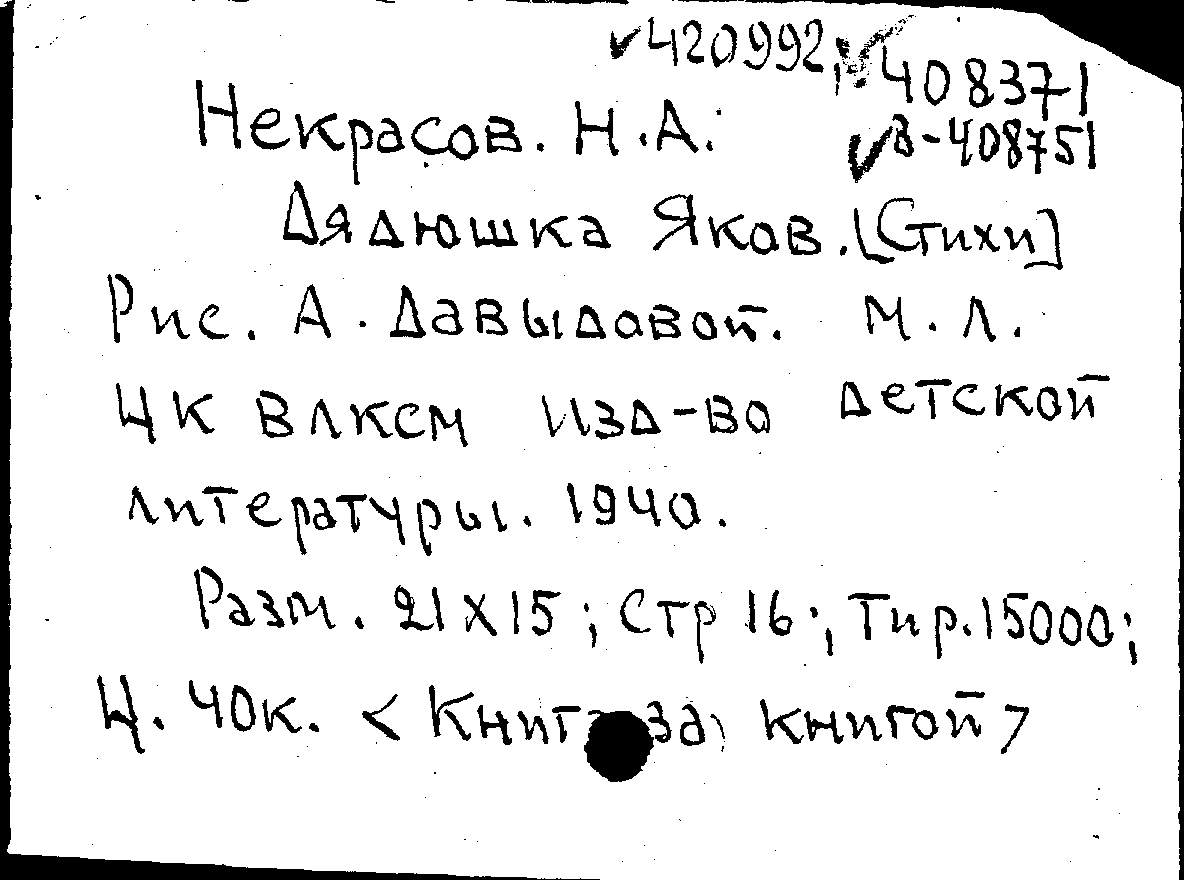 ✓420992; ✓408371
✓в-408751
Некрасов. Н.А.
Дядюшка Яков. [Стихи]
Рис. А. Давыдовой. М. Л.
ЦК ВЛКСМ изд-во детской
литературы. 1940.
Разм. 21х15; Стр 16; Тир. 15000;
Ц. 40к. < Книга за книгой >